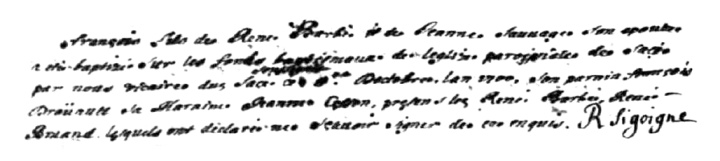 François fils de René Barbi et de Jeanne Sauvage son epouse
a été baptizé sur les fonds baptismaux de leglise paroissiale de Sacé
par nous vicaire dud Sacé ce octobre lan 1700. son parain François
Droüault sa Maraine Jeanne presens les René Barbi, René
Briand lesquels ont declaré ne scavoir signer de ce enquis. R Sigoigne